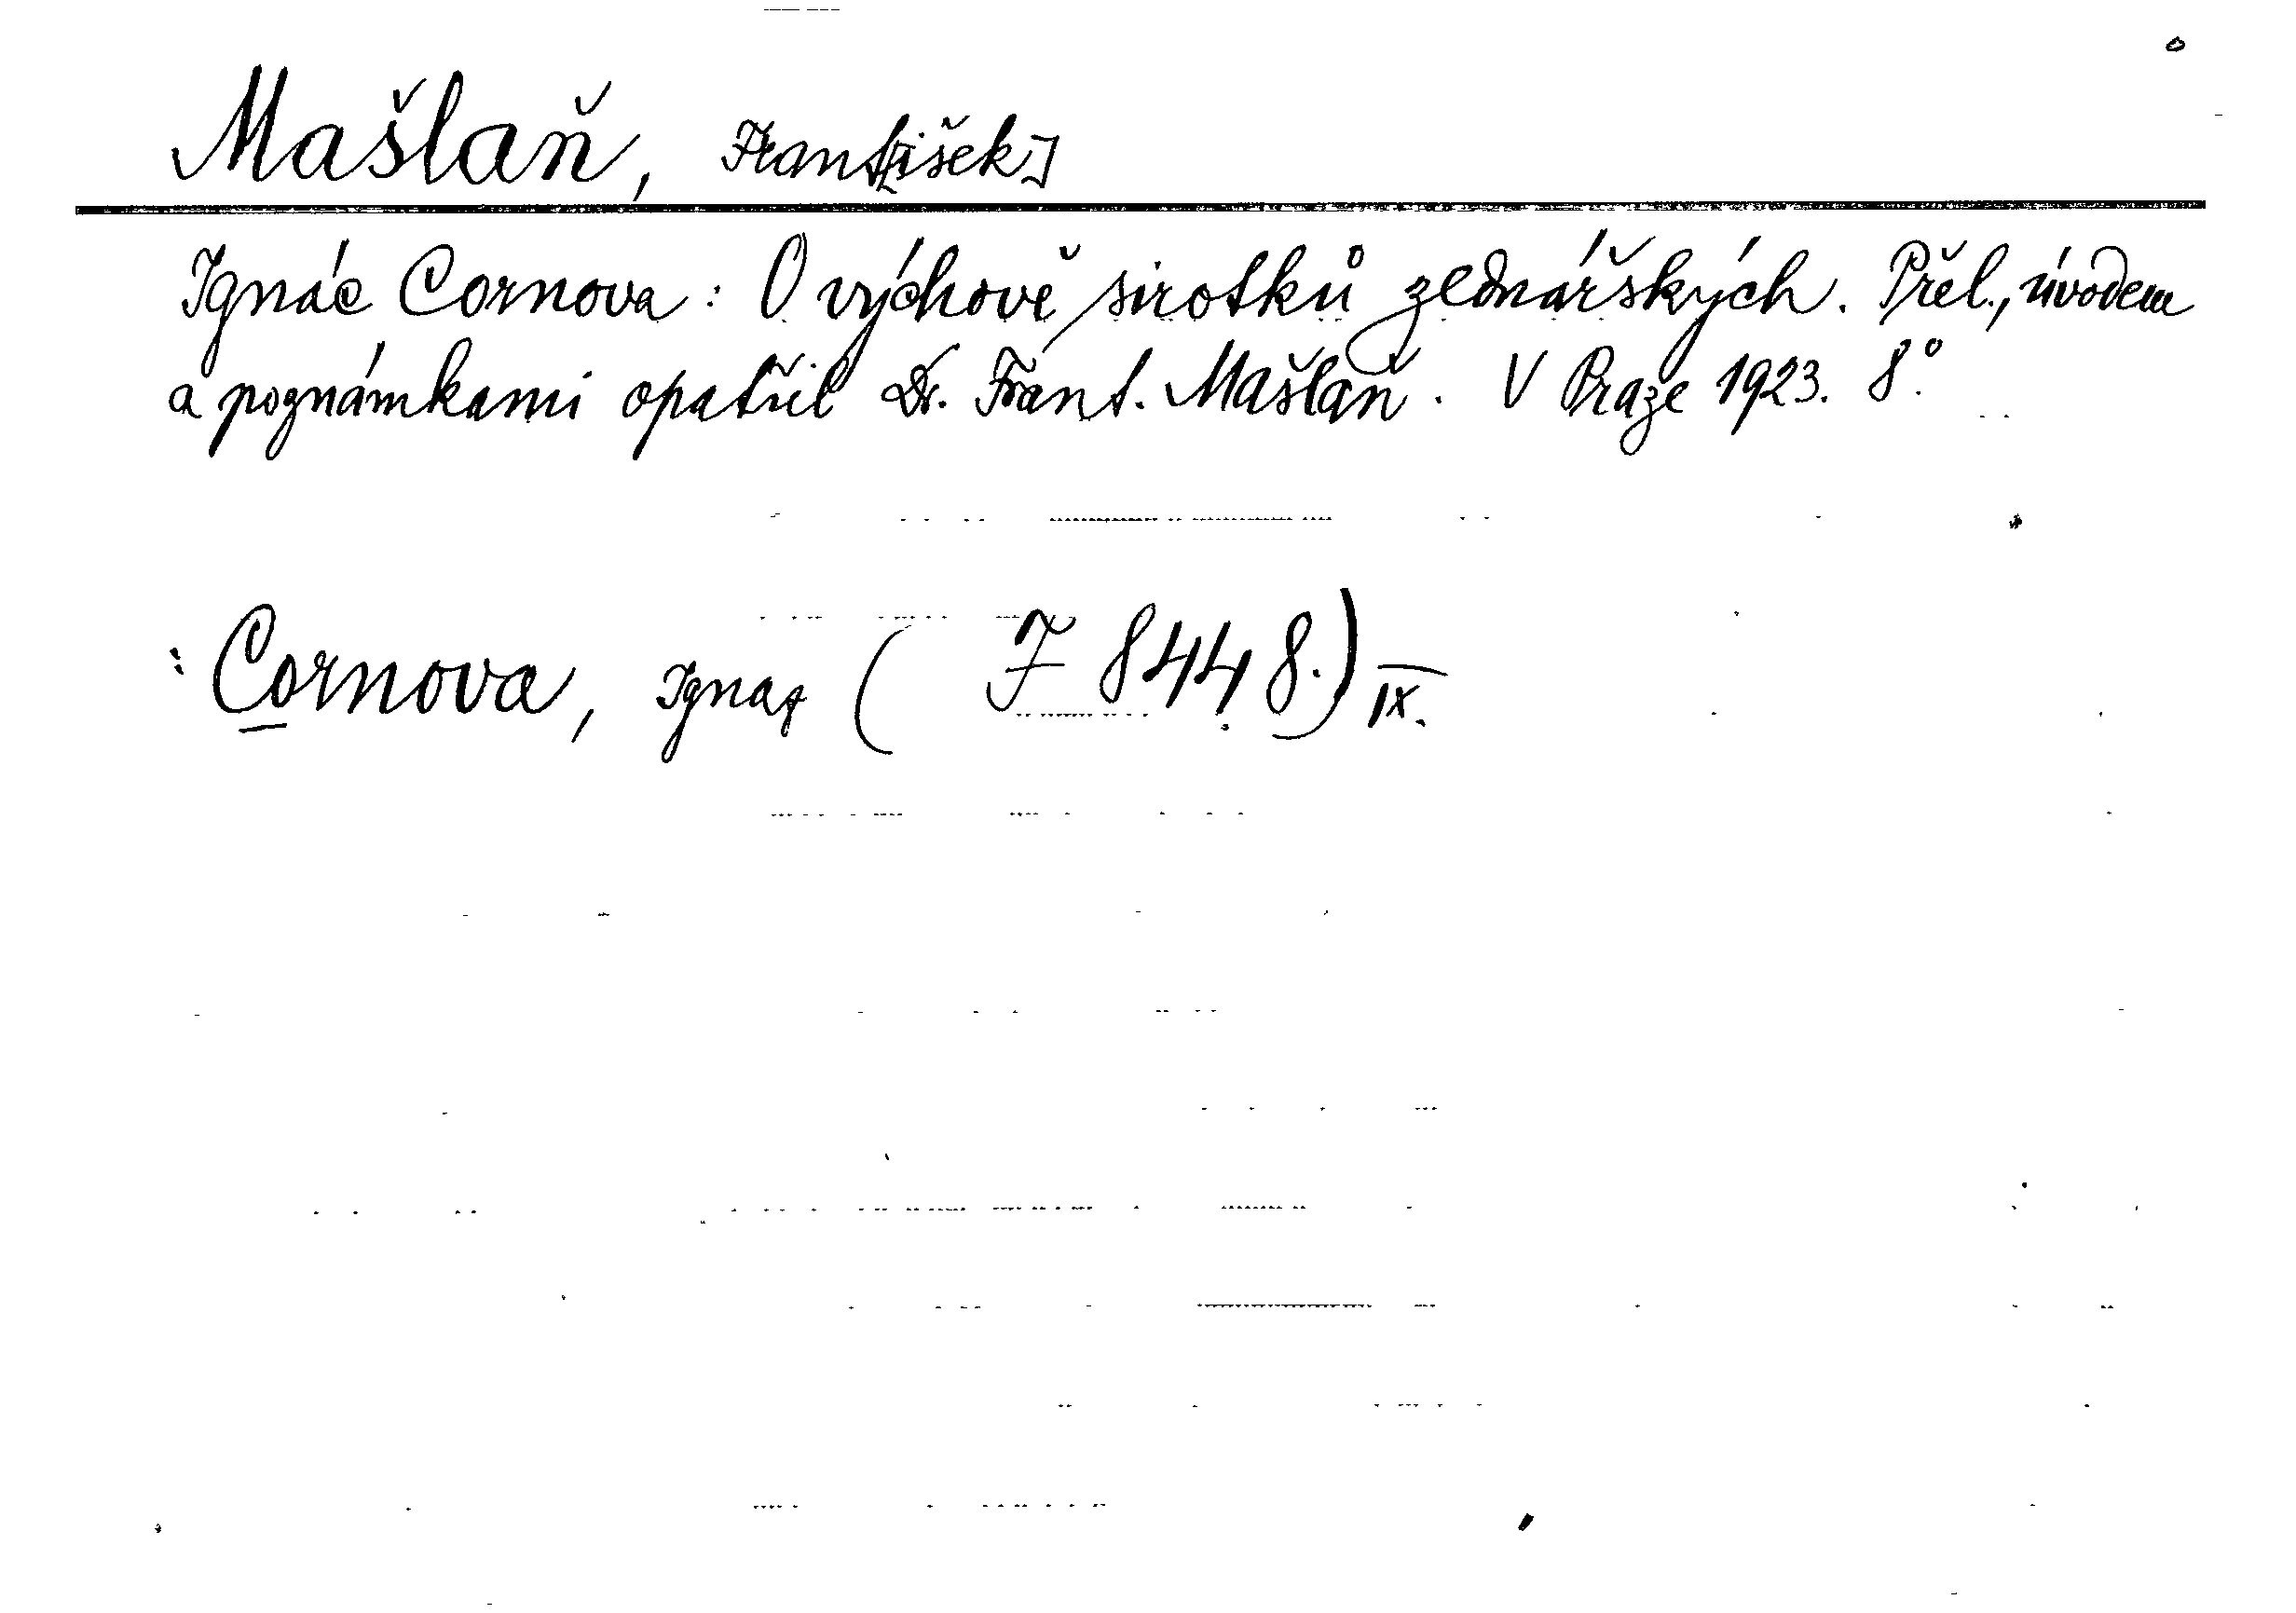 Mašlaň, Frant[išek]
Ignác Cornova: O výchově sirotků zednářských. Přel., úvodem
a poznámkami opatřil Dr. Frant. Mašlaň. V Praze 1923. 8°.
: Cornova, Ignaz ( F 8448.) IX.